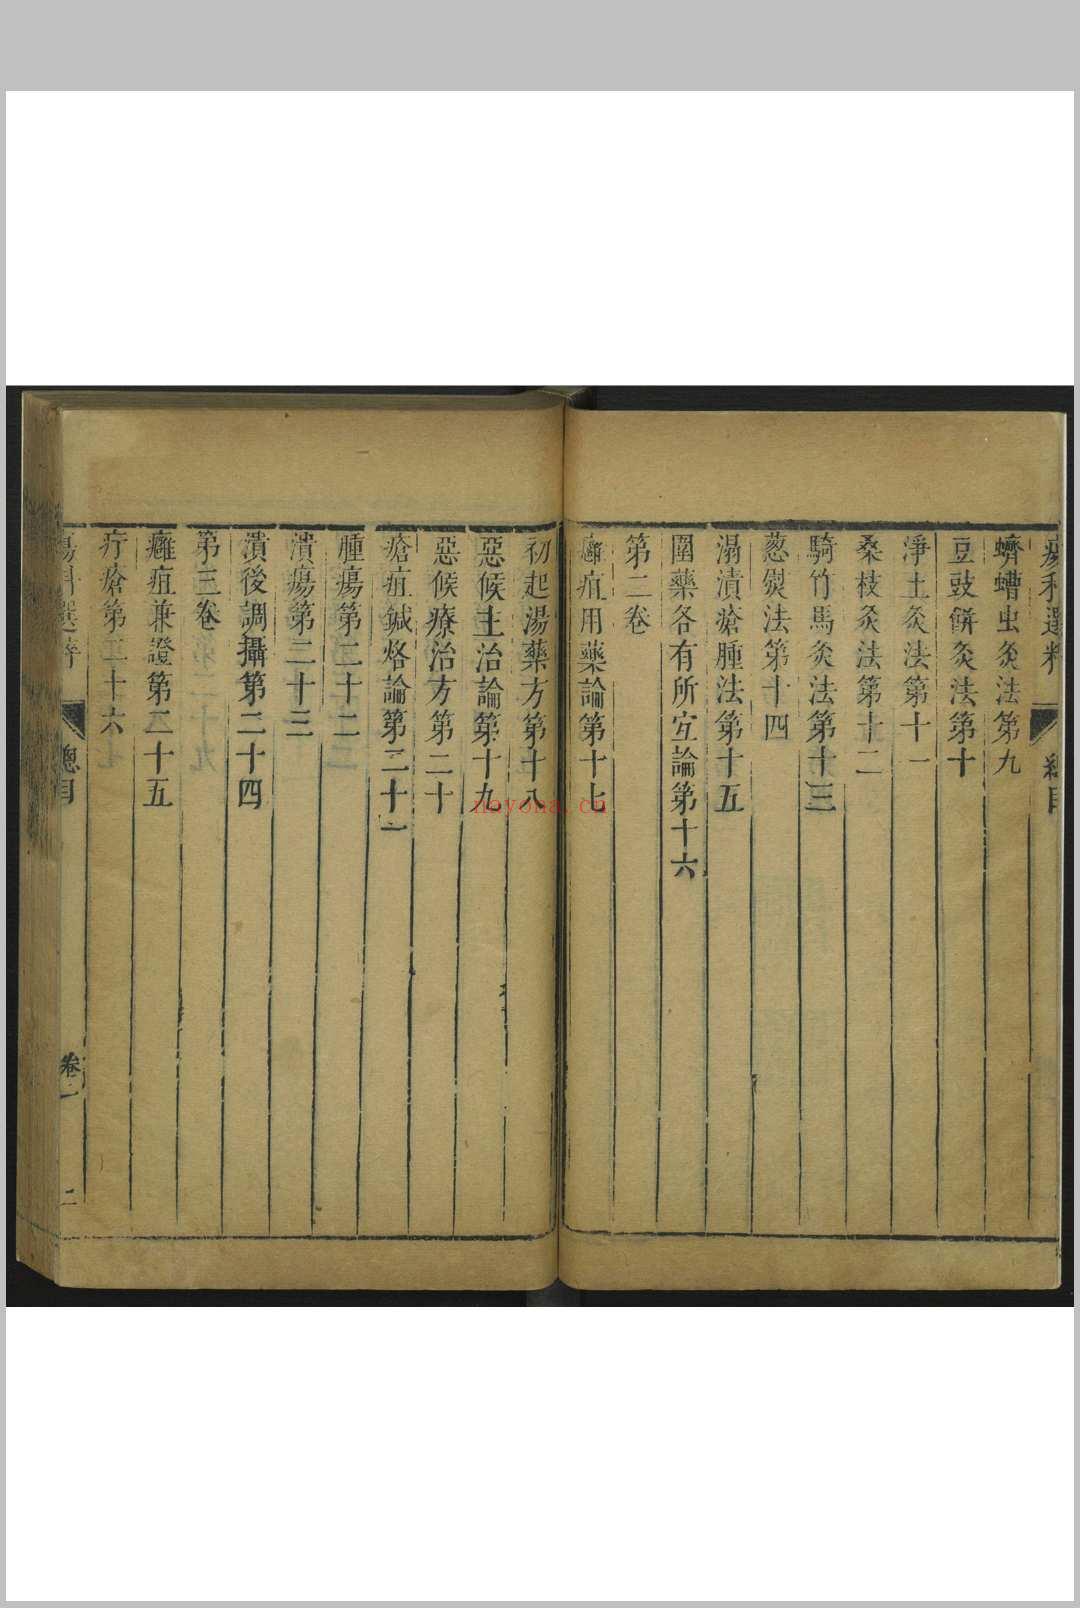 蠐螬虫灸法第九
豆豉餅灸法第十
淨土灸法第十一
桑枝灸法第十二
騎竹馬灸法第十三
葱熨法第十四
溻漬瘡腫法第十五
圍藥各有所宜論第十六
第二卷
癰疽用藥論第十七
初起湯藥方第十八
惡候主治論第十九
惡候療治方第二十
瘡疽鍼烙論第二十一
腫瘍第二十二
潰瘍第二十三
潰後調攝第二十四
第三卷
癰疽兼證第二十五
疔瘡第二十六
總目
卷二
二
nayona.cn